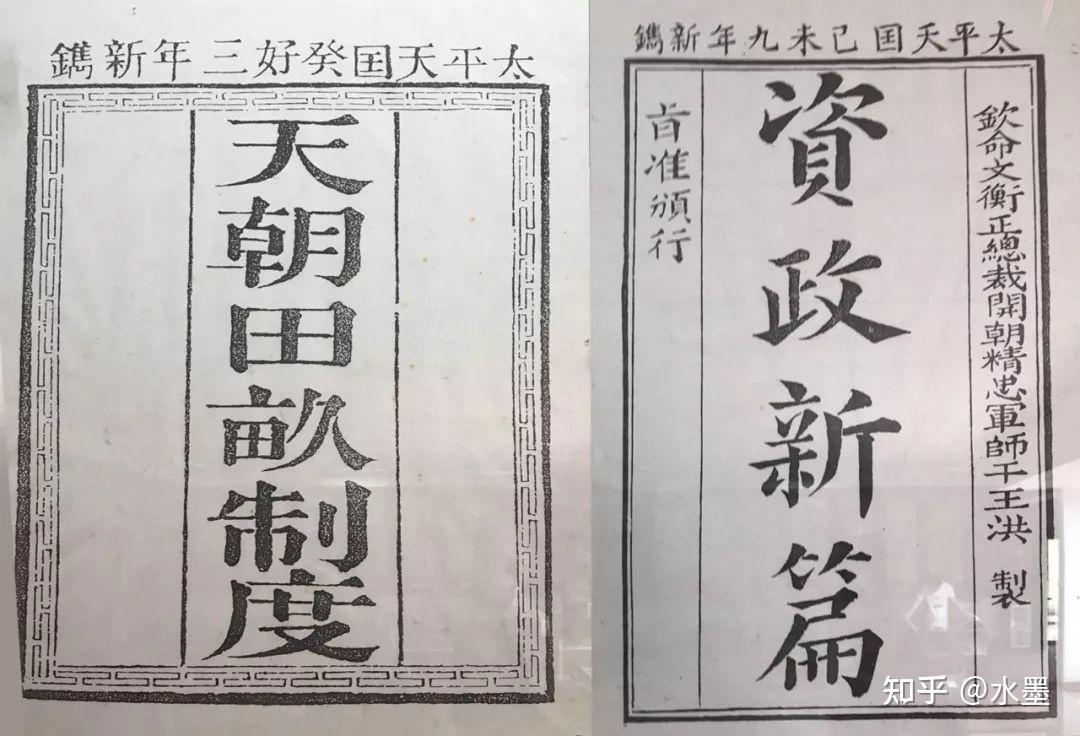 太平天囯癸好三年新鐫
天朝田畝制度
太平天囯己未九年新鐫
欽命文衡正總裁開朝精忠軍師干王洪 製
資政新篇
旨准頒行
知乎 @水墨